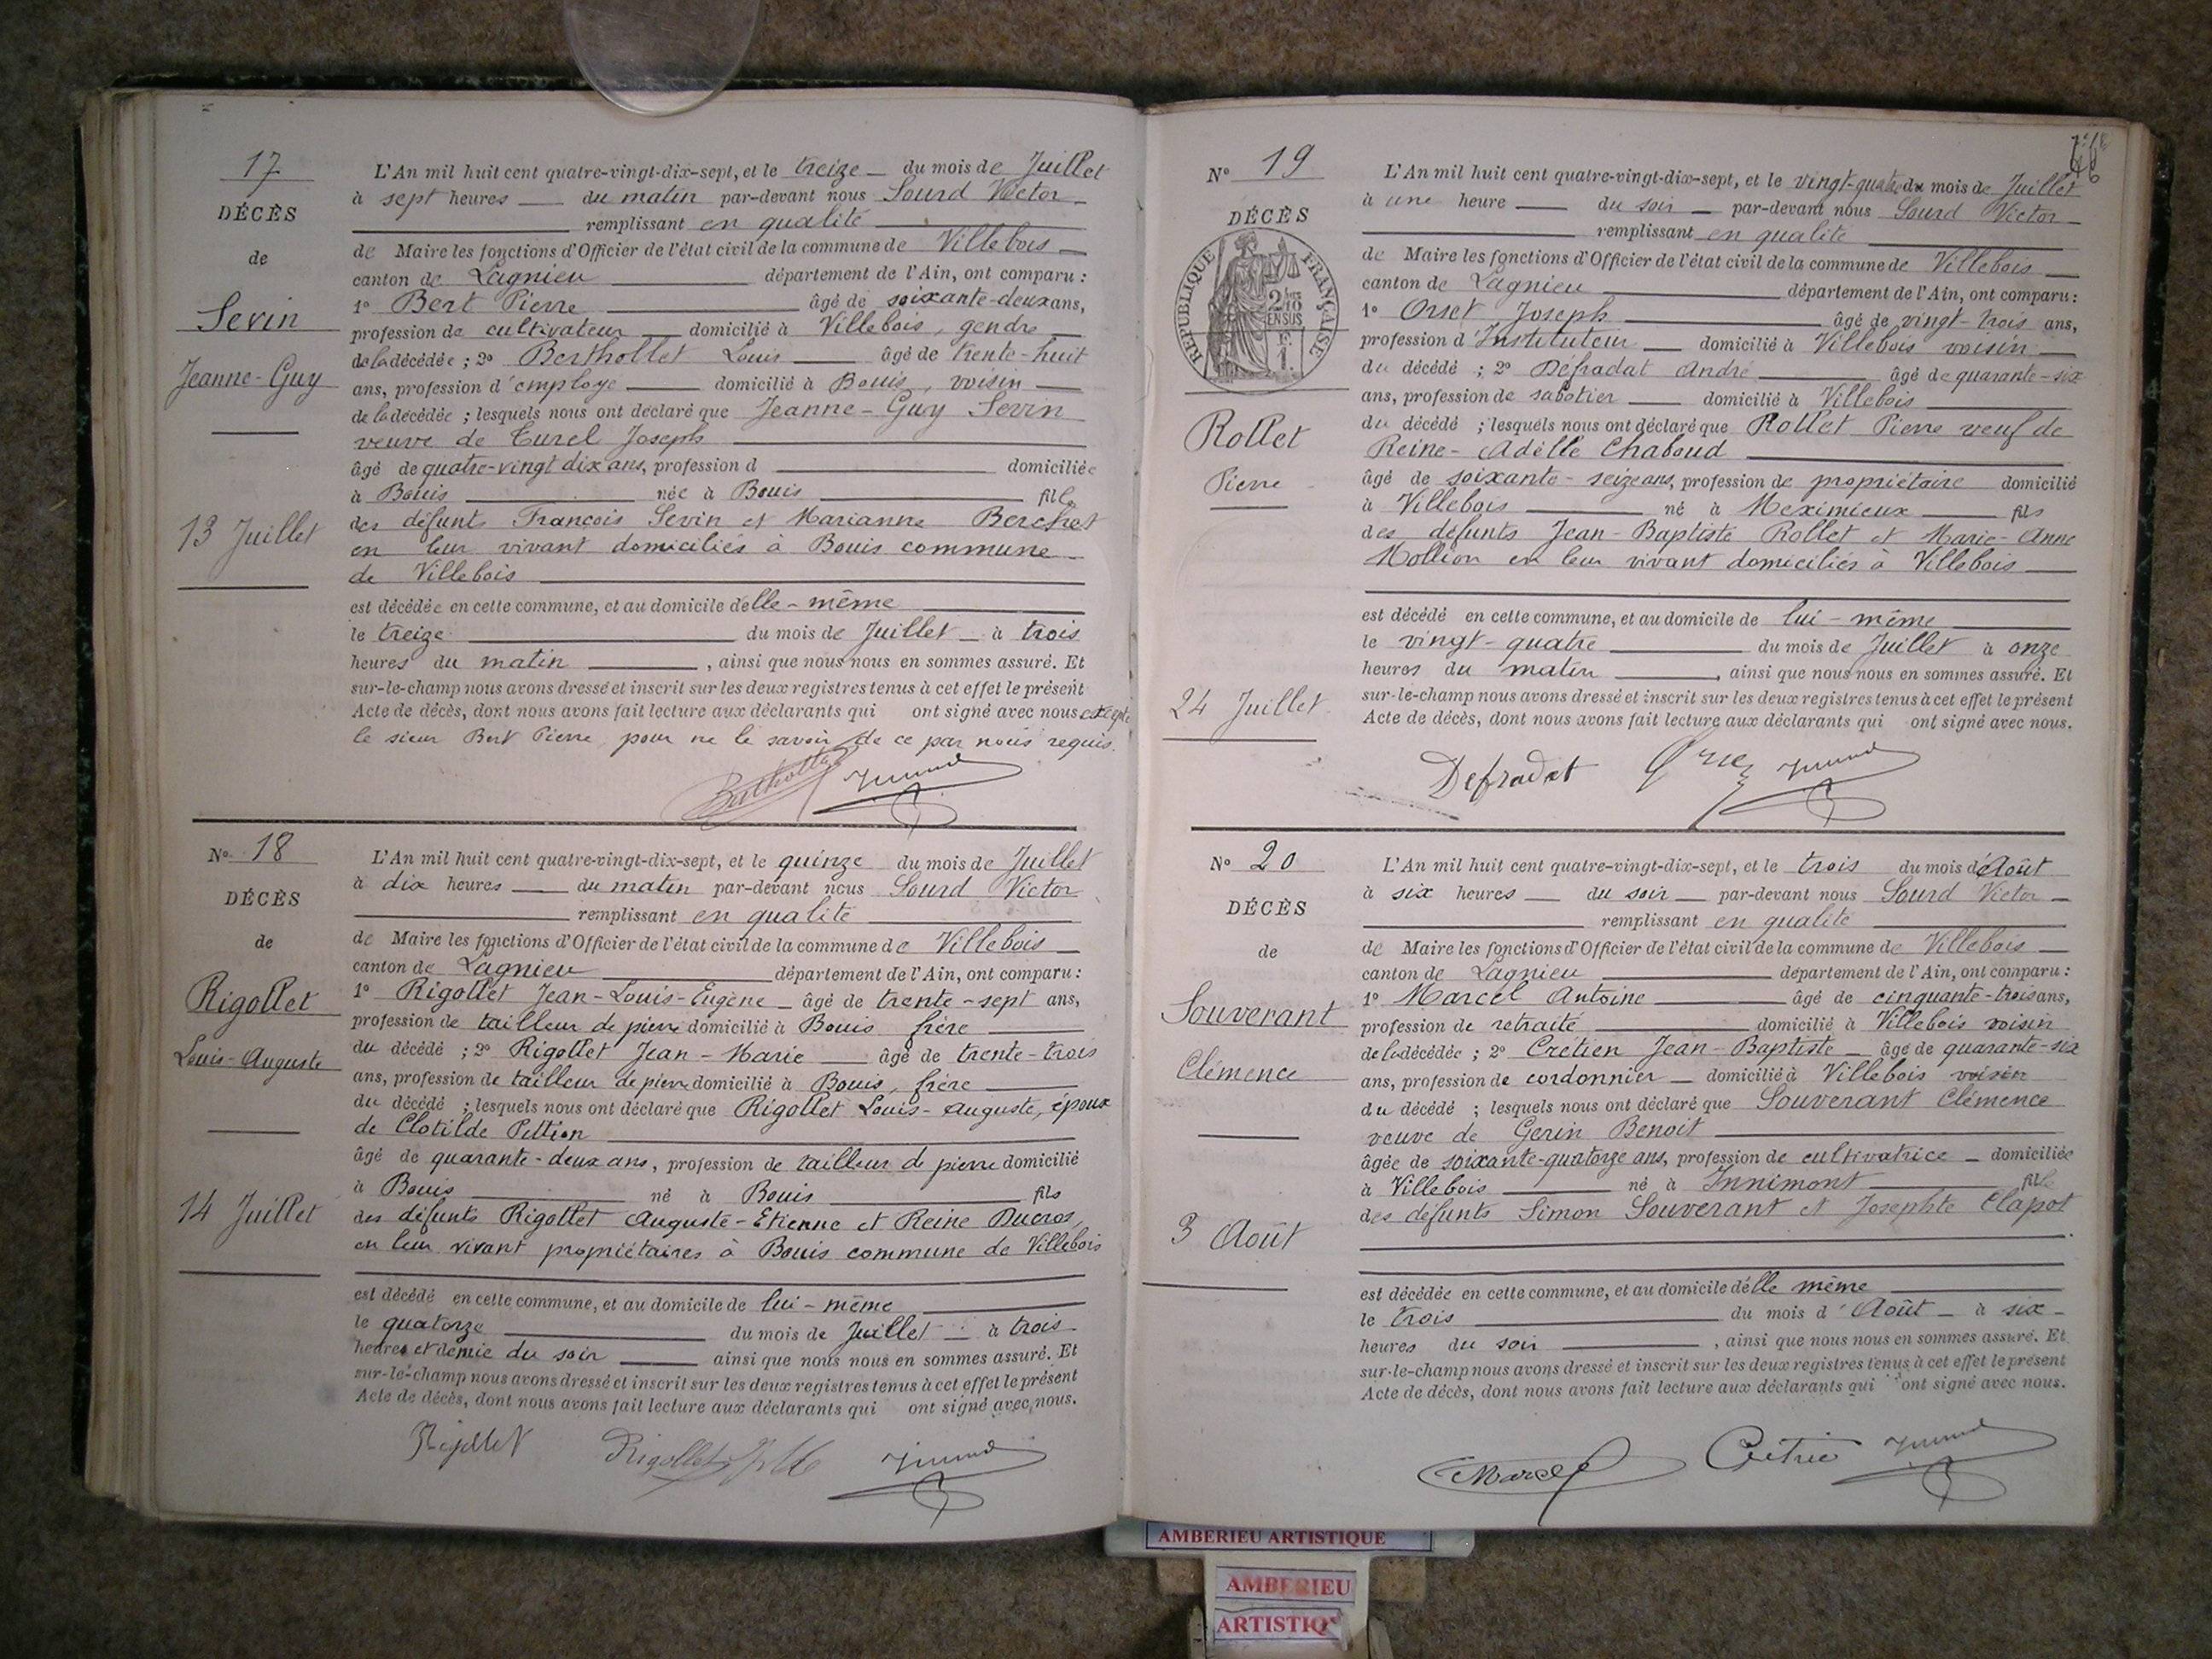 17
DÉCÈS
de
Sevin
Jeanne-Guy
13 Juillet
L'An mil huit cent quatre-vingt-dix-sept, et le treize du mois de Juillet
à sept heures du matin par-devant nous Sourd Victor
remplissant en qualité
de Maire les fonctions d'Officier de l'état civil de la commune de Villebois
canton de Lagnieu département de l'Ain, ont comparu :
1º Bert Pierre âgé de soixante-deux ans,
profession de cultivateur domicilié à Villebois, gendre
de la décédée ; 2º Berthollet Louis âgé de trente-huit
ans, profession d'employé domicilié à Bouis, voisin
de la décédée ; lesquels nous ont déclaré que Jeanne-Guy Sevin
veuve de Turel Joseph
âgé de quatre-vingt dix ans, profession d domiciliée
à Bouis née à Bouis fille
des défunts François Sevin et Marianne Berchet
en leur vivant domiciliés à Bouis commune
de Villebois
est décédée en cette commune, et au domicile d'elle-même
le treize du mois de Juillet à trois
heures du matin , ainsi que nous nous en sommes assuré. Et
sur-le-champ nous avons dressé et inscrit sur les deux registres tenus à cet effet le présent
Acte de décès, dont nous avons fait lecture aux déclarants qui ont signé avec nous excepté
le sieur Bert Pierre pour ne le savoir de ce par nous requis.
Berthollet
Nº 18
DÉCÈS
de
Rigollet
Louis-Auguste
14 Juillet
L'An mil huit cent quatre-vingt-dix-sept, et le quinze du mois de Juillet
à dix heures du matin par-devant nous Sourd Victor
remplissant en qualité
de Maire les fonctions d'Officier de l'état civil de la commune de Villebois
canton de Lagnieu département de l'Ain, ont comparu :
1º Rigollet Jean-Louis-Eugène âgé de trente-sept ans,
profession de tailleur de pierre domicilié à Bouis frère
du décédé ; 2º Rigollet Jean-Marie âgé de trente-trois
ans, profession de tailleur de pierre domicilié à Bouis, frère
du décédé ; lesquels nous ont déclaré que Rigollet Louis-Auguste, époux
de Clotilde Pettion
âgé de quarante-deux ans, profession de tailleur de pierre domicilié
à Bouis né à Bouis fils
des défunts Rigollet Auguste-Etienne et Reine Ducros,
en leur vivant propriétaires à Bouis commune de Villebois
est décédé en cette commune, et au domicile de lui-même
le quatorze du mois de Juillet à trois
heures et demie du soir ainsi que nous nous en sommes assuré. Et
sur-le-champ nous avons dressé et inscrit sur les deux registres tenus à cet effet le présent
Acte de décès, dont nous avons fait lecture aux déclarants qui ont signé avec nous.
Rigollet Rigollet
Nº 19
DÉCÈS
RÉPUBLIQUE FRANÇAISE
2/10 EN SUS
Rollet
Pierre
24 Juillet
L'An mil huit cent quatre-vingt-dix-sept, et le vingt-quatre du mois de Juillet
à une heure du soir par-devant nous Sourd Victor
remplissant en qualité
de Maire les fonctions d'Officier de l'état civil de la commune de Villebois
canton de Lagnieu département de l'Ain, ont comparu :
1º Orset Joseph âgé de vingt-trois ans,
profession d'Instituteur domicilié à Villebois voisin
du décédé ; 2º Défradat André âgé de quarante-six
ans, profession de sabotier domicilié à Villebois
du décédé ; lesquels nous ont déclaré que Rollet Pierre veuf de
Reine-Adèlle Chaboud
âgé de soixante-seize ans, profession de propriétaire domicilié
à Villebois né à Meximieux fils
des défunts Jean-Baptiste Rollet et Marie-Anne
Mollion en leur vivant domiciliés à Villebois
est décédé en cette commune, et au domicile de lui-même
le vingt-quatre du mois de Juillet à onze
heures du matin , ainsi que nous nous en sommes assuré. Et
sur-le-champ nous avons dressé et inscrit sur les deux registres tenus à cet effet le présent
Acte de décès, dont nous avons fait lecture aux déclarants qui ont signé avec nous.
Defradat
Nº 20
DÉCÈS
de
Souverant
Clémence
3 Août
L'An mil huit cent quatre-vingt-dix-sept, et le trois du mois d'Août
à six heures du soir par-devant nous Sourd Victor
remplissant en qualité
de Maire les fonctions d'Officier de l'état civil de la commune de Villebois
canton de Lagnieu département de l'Ain, ont comparu :
1º Marcel Antoine âgé de cinquante-trois ans,
profession de retraité domicilié à Villebois voisin
de la décédée ; 2º Crétien Jean-Baptiste âgé de quarante-six
ans, profession de cordonnier domicilié à Villebois voisin
du décédé ; lesquels nous ont déclaré que Souverant Clémence
veuve de Gerin Benoit
âgée de soixante-quatorze ans, profession de cultivatrice domiciliée
à Villebois né à Innimont fille
des défunts Simon Souverant et Josephte Clapot
est décédée en cette commune, et au domicile d'elle même
le trois du mois d'Août à six
heures du soir , ainsi que nous nous en sommes assuré. Et
sur-le-champ nous avons dressé et inscrit sur les deux registres tenus à cet effet le présent
Acte de décès, dont nous avons fait lecture aux déclarants qui ont signé avec nous.
Marcel
AMBERIEU ARTISTIQUE
AMBERIEU
ARTISTIQ